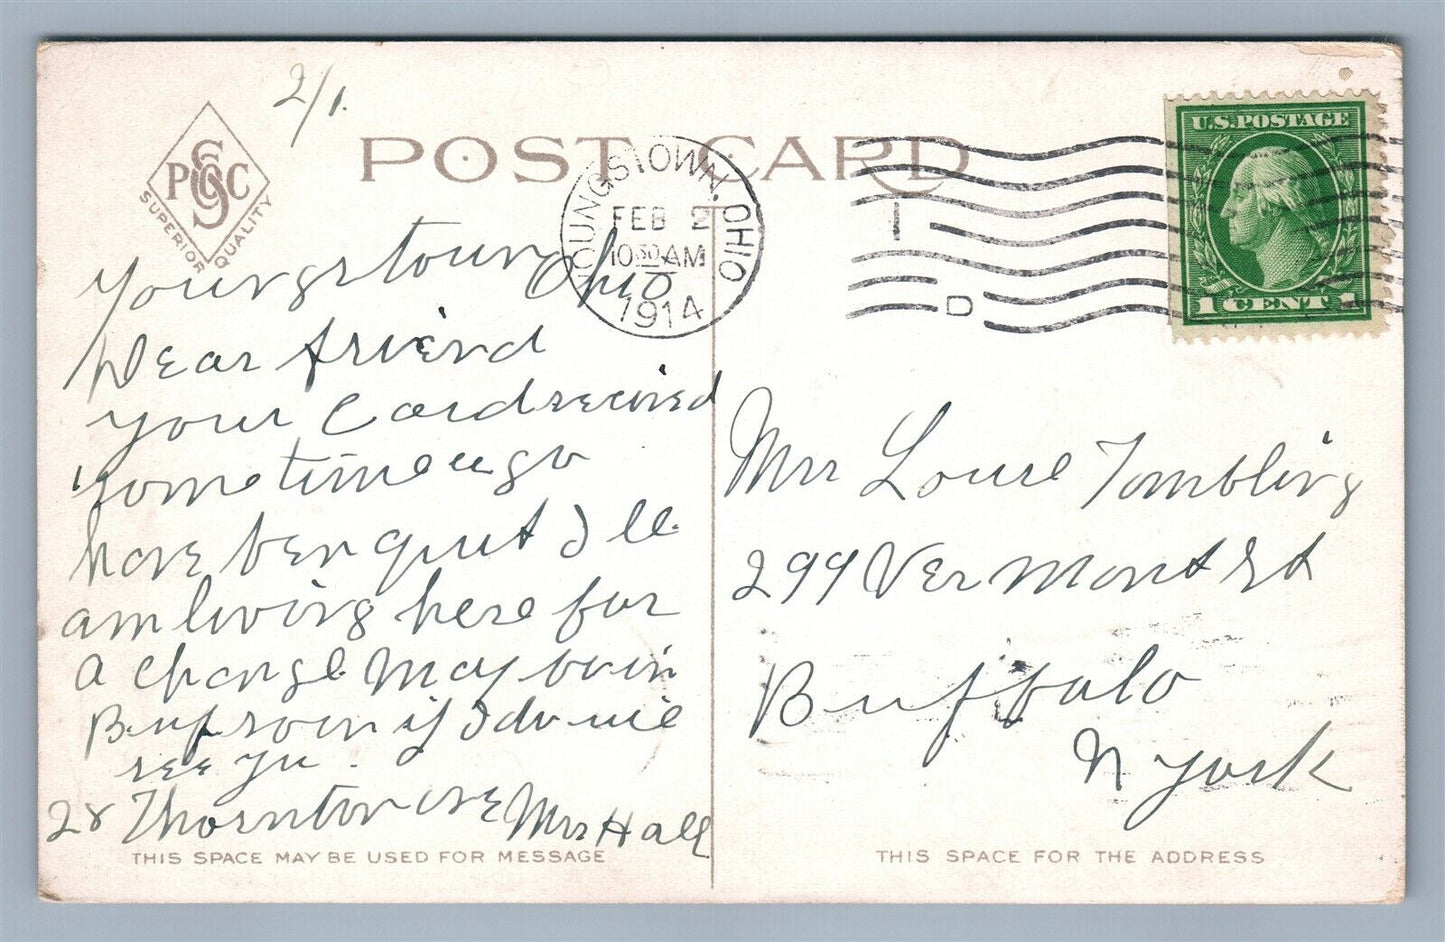 2/1.
POST CARD
PCSCO
SUPERIOR QUALITY
YOUNGSTOWN, OHIO
FEB 2
10 30 AM
1914
1
D
U.S. POSTAGE
1 CENT 1
Youngstown Ohio
Dear friend
your Card received
sometime ago
have ben quiet Ill
am living here for
a change May be in
Buf soon if I do wil
see yu.
28 Thornton ave Mrs Hall
THIS SPACE MAY BE USED FOR MESSAGE
Mrs Louise Tombling
299 Vermont St
Buffalo
N York
THIS SPACE FOR THE ADDRESS